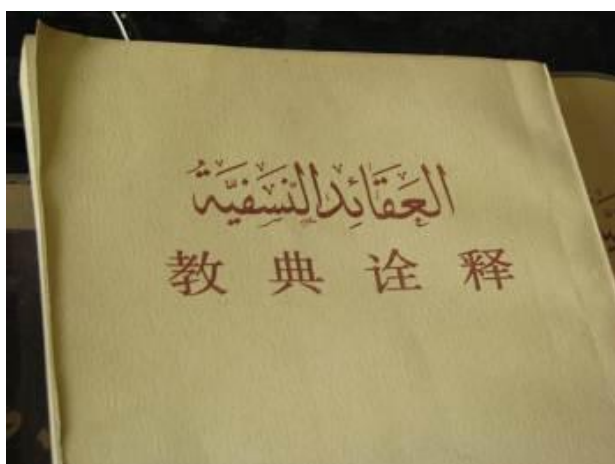 العقائد النسفية
教典诠释